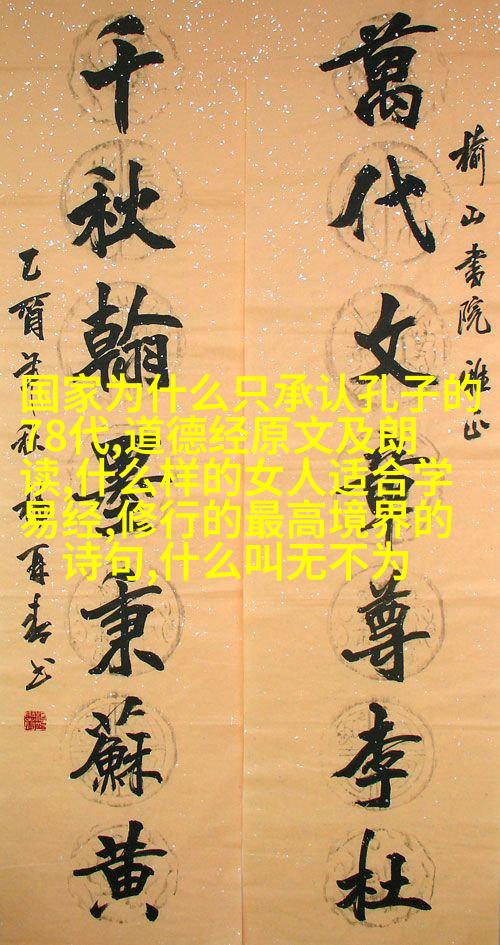 榆山書院雅正
萬代文章尊李杜
千秋翰墨秉蘇黄
乙酉秋再春书
国家为什么只承认孔子的
78代,道德经原文及朗
读,什么样的女人适合学
易经,修行的最高境界的
诗句,什么叫无不为